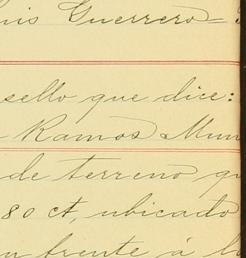 uis Guerrero=
sello que dice:
Ramos Mun
de terreno qu
80 ct, ubicado
frente á la